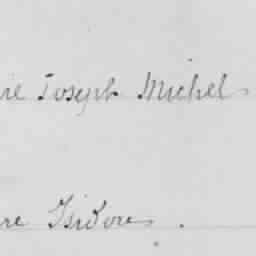 re Joseph Michel
re Isidore.